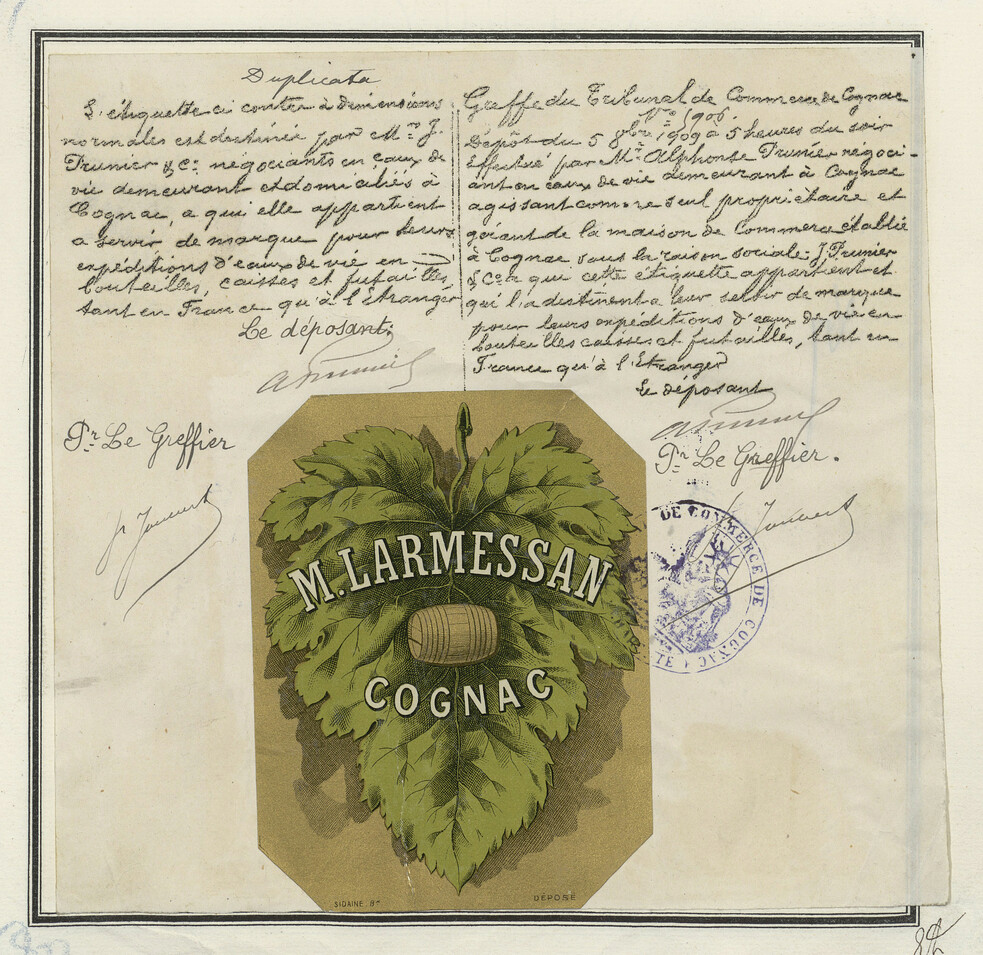 Duplicata
L'étiquette ci contre à dimensions
normales est destinée par Mr. J.
Prunier & Co. négociants en eaux de
vie demeurant et domiciliés à
Cognac, a qui elle appartient
a servir de marque pour leurs
expéditions d'eaux de vie en
bouteilles, caisses et futailles,
tant en France qu'à l'étranger
Le déposant
Pr Le Greffier
Greffe du Tribunal de Commerce de Cognac
No 1906
Dépôt du 5 8bre 1909 à 5 heures du soir
Effectué par Mr. Alphonse Prunier négoci-
ant en eaux de vie demeurant à Cognac
agissant comme seul propriétaire et
gérant de la maison de Commerce établie
à Cognac sous la raison sociale: J. Prunier
& Co. a qui cette étiquette appartient et
qui l'a destinent a leur servir de marque
pour leurs expéditions d'eaux de vie en
bouteilles caisses et futailles, tant en
France qu'à l'Etranger
Le déposant
Pr Le Greffier.
DE COMMERCE DE COGNAC
M. LARMESSAN
COGNAC
SIDAINE, Bx
DÉPOSÉ